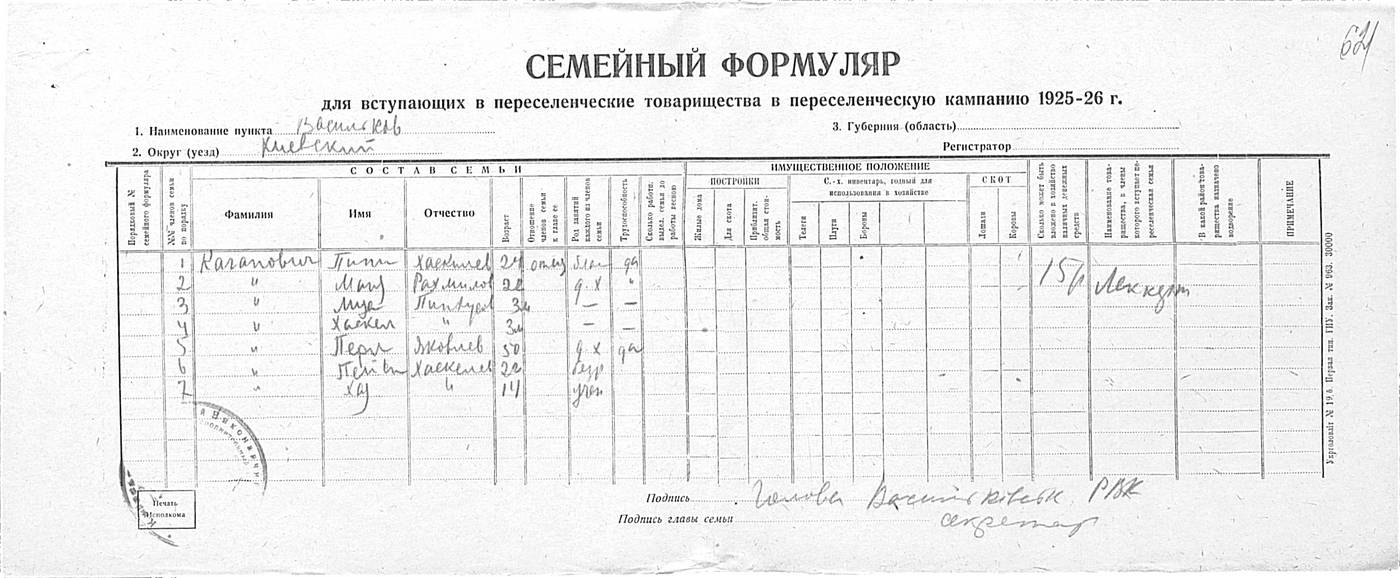 621
СЕМЕЙНЫЙ ФОРМУЛЯР
для вступающих в переселенческие товарищества в переселенческую кампанию 1925-26 г.
1. Наименование пункта Васильков
3. Губерния (область)
2. Округ (уезд) Киевский
Регистратор
СОСТАВ СЕМЬИ
ИМУЩЕСТВЕННОЕ ПОЛОЖЕНИЕ
Порядковый № семейного формуляра
№№ членов семьи по порядку
Фамилия
Имя
Отчество
Возраст
Отношение членов семьи к главе ее
Род занятий каждого из членов семьи
Трудоспособность
Сколько работн. выдел. семья до работы весною
ПОСТРОЙКИ
Жилые дома
Для скота
Приблизит. общая стоимость
С.-х. инвентарь, годный для использования в хозяйстве
Телеги
Плуги
Бороны
СКОТ
Лошади
Коровы
Сколько может быть вложено в хозяйство наличных денежных средств
Наименование товарищества, в члены которого вступает переселенческая семья
В какой район товарищества назначено водворение
ПРИМЕЧАНИЕ
1 Каганович Хаскилев 24 да 15р Леккерт
2 " Рахмилов 22 д.х "
3 " 3м — —
4 " Хаскел " 3м — —
5 " Перл Яковлев 50 д.х да
6 " Хаскелев 22 безр
7 " " 14 учен
Печать Исполкома
Подпись Голова Васильківськ. РВК
Подпись главы семьи секретар
Укрголовліт № 19,6. Первая тип. ГПУ. Зак. № 963. 30000